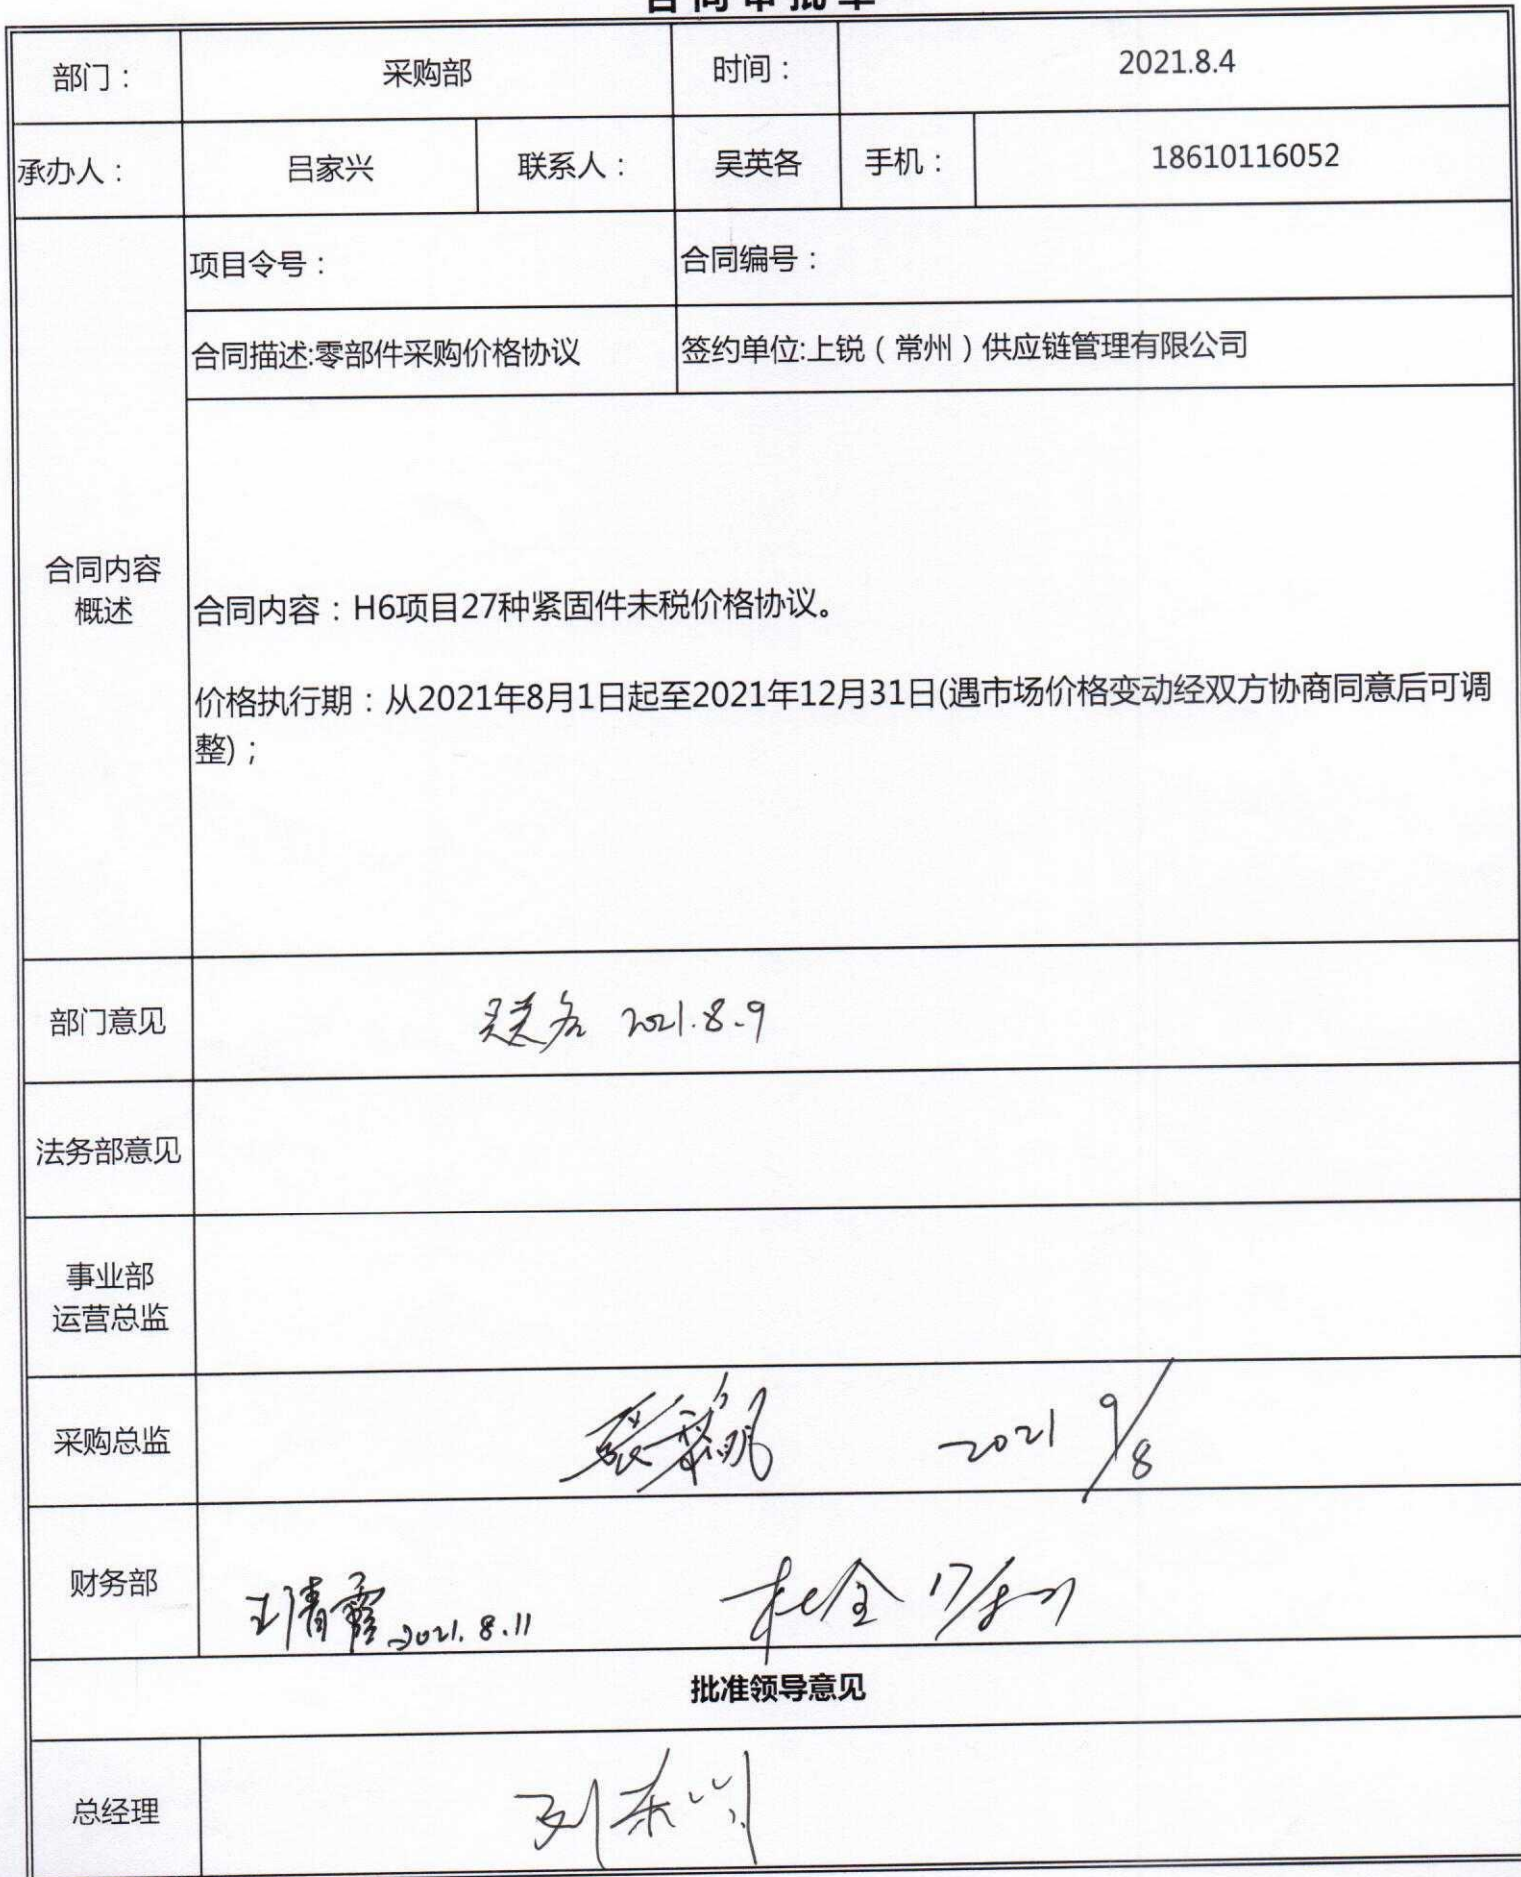 合同审批单
部门： 采购部 时间： 2021.8.4
承办人： 吕家兴 联系人： 吴英各 手机： 18610116052
项目令号： 合同编号：
合同描述:零部件采购价格协议 签约单位:上锐（常州）供应链管理有限公司
合同内容
概述
合同内容：H6项目27种紧固件未税价格协议。
价格执行期：从2021年8月1日起至2021年12月31日(遇市场价格变动经双方协商同意后可调
整)；
部门意见 吴英各 2021.8.9
法务部意见
事业部
运营总监
采购总监 2021 9/8
财务部 王清霞 2021.8.11 杜全
批准领导意见
总经理